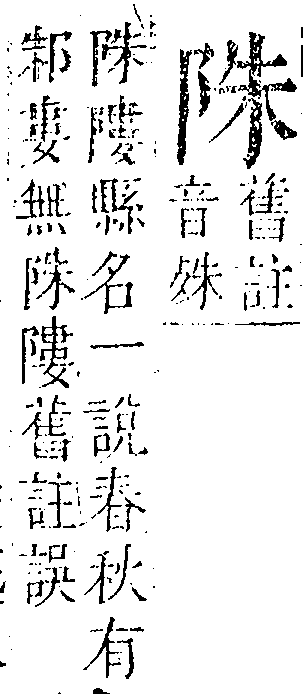 陎
舊註
音殊
陎𨻻縣名一說春秋有
邾婁無陎𨻻舊註誤